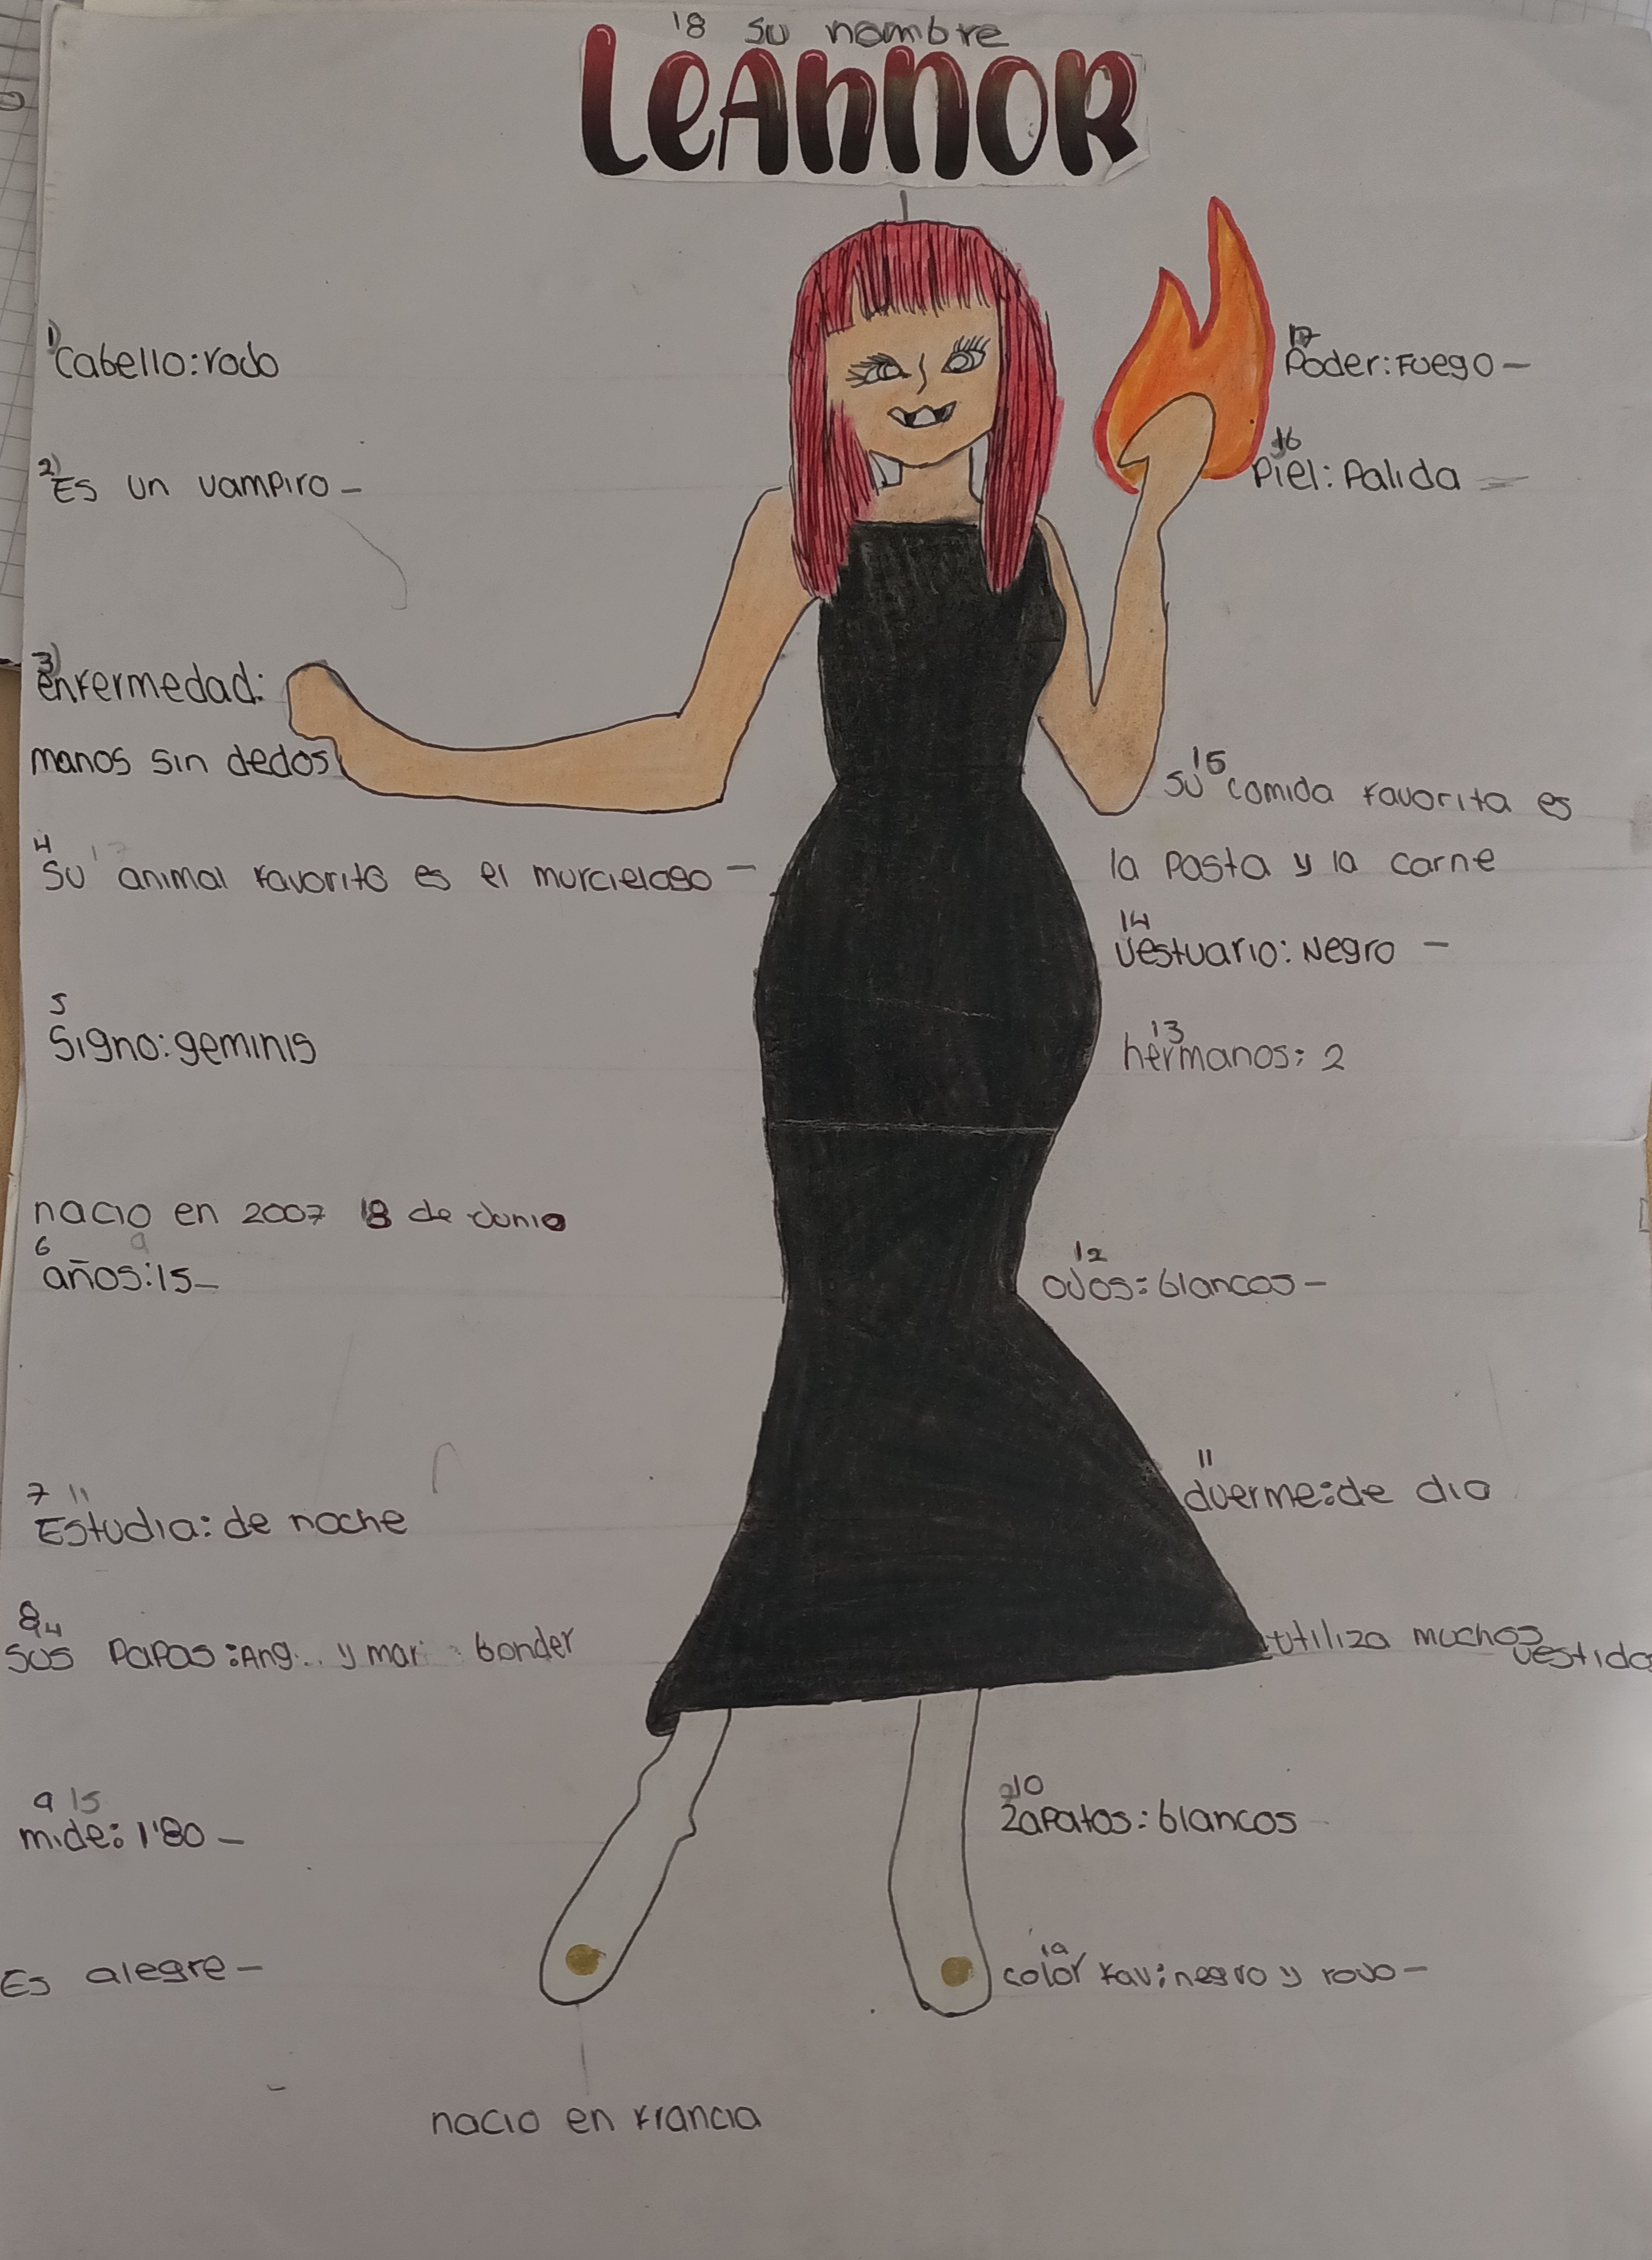 18 su nombre
LeAnnOR
1) Cabello: rodo
2) Es un vampiro -
3) enfermedad:
manos sin dedos
4 Su animal favorito es el murcielago -
5 Signo: geminis
nacio en 2007 18 de Junio
6 años: 15 -
7 11 Estudia: de noche
8 sus papas: Ang y mar bonder
9 15 mide: 1'80 -
Es alegre -
nacio en francia
17 Poder: Fuego -
16 Piel: Palida
15 su comida favorita es
la pasta y la carne
14 Vestuario: Negro -
13 hermanos: 2
12 oJos: blancos -
11 duerme: de dia
utiliza muchos
vestido
10 Zapatos: blancos
19 color fav: negro y roJo -